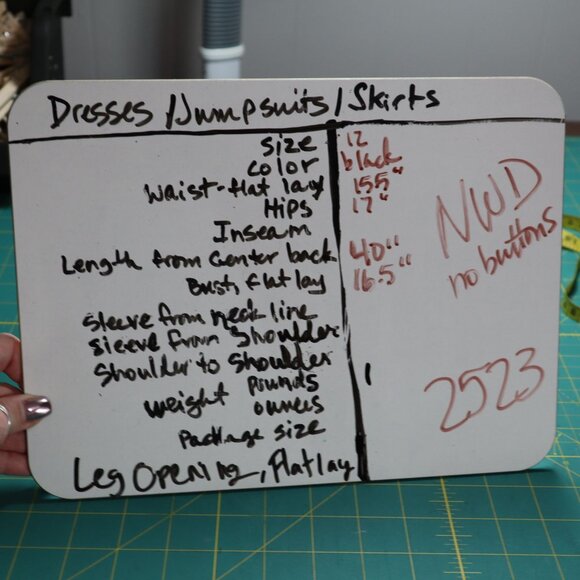 Dresses / Jumpsuits / Skirts
size 12
color black
Waist-flat lay 15.5"
Hips 17"
Inseam
Length from Center back 40"
Bust, flat lay 16.5"
Sleeve from neck line
Sleeve from Shoulder
Shoulder to Shoulder
weight pounds 1
ounces
package size
Leg Opening, Flatlay
NWD
no buttons
2523